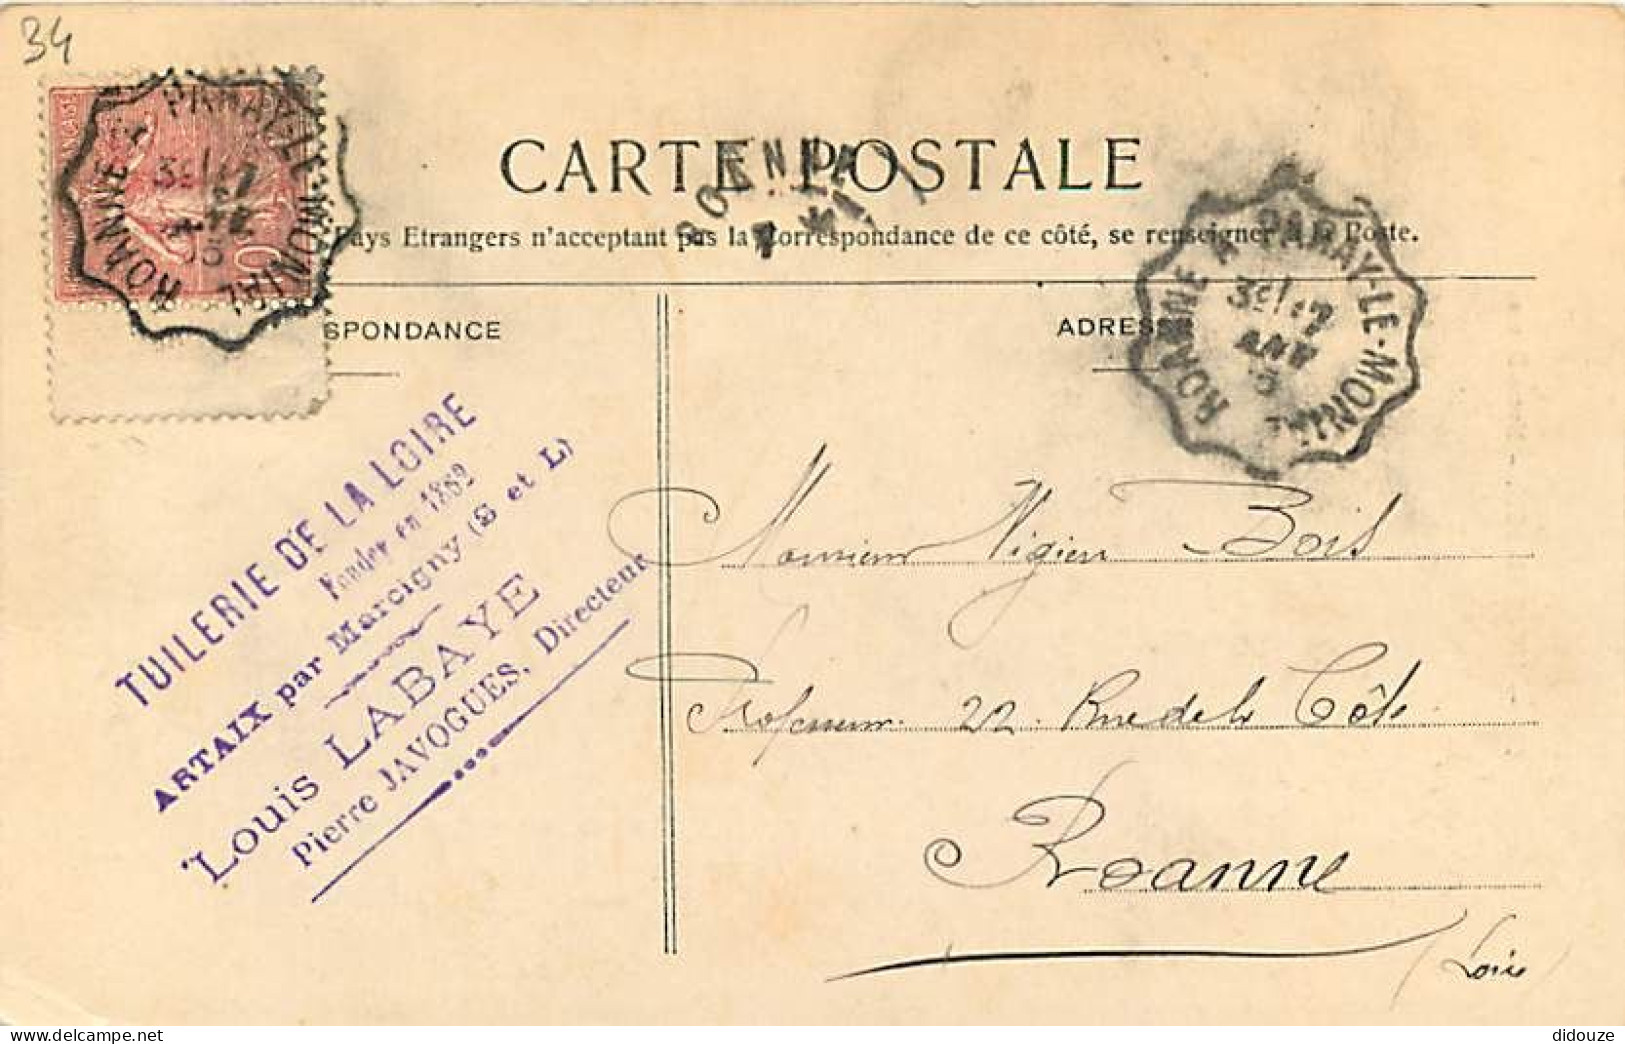 34
CARTE POSTALE
Pays Etrangers n'acceptant pas la Correspondance de ce côté, se renseigner à la Poste.
SPONDANCE
ADRESSE
ROANNE A PARAY-LE-MONIAL
3E/17
AVR
05
ROANNE A PARAY-LE-MONIAL
3E/17
AVR
5
ROANNE
TUILERIE DE LA LOIRE
Fondée en 1862
ARTAIX par Marcigny (S et L)
Louis LABAYE
Pierre JAVOGUES, Directeur
Monsieur Vigier Bois
Professeur 22 Rue de la Côte
Roanne
(Loire)
didouze